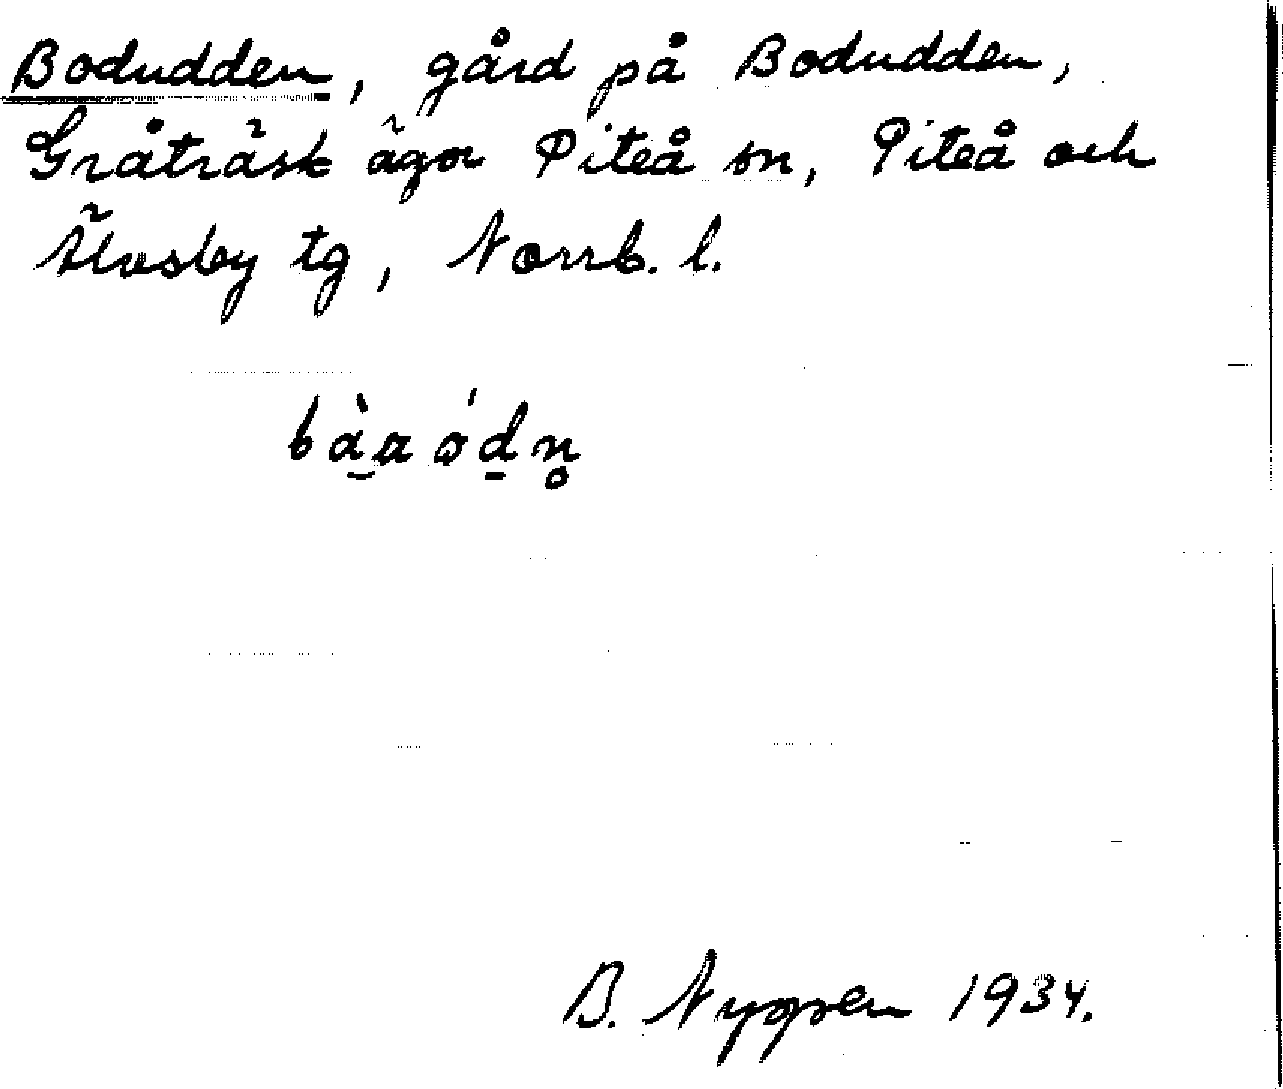 Bodudden, gård på Bodudden,
Gråträsk ägor Piteå sn, Piteå och
Älvsby tg, Norrb. l.
B. Nygren 1934.